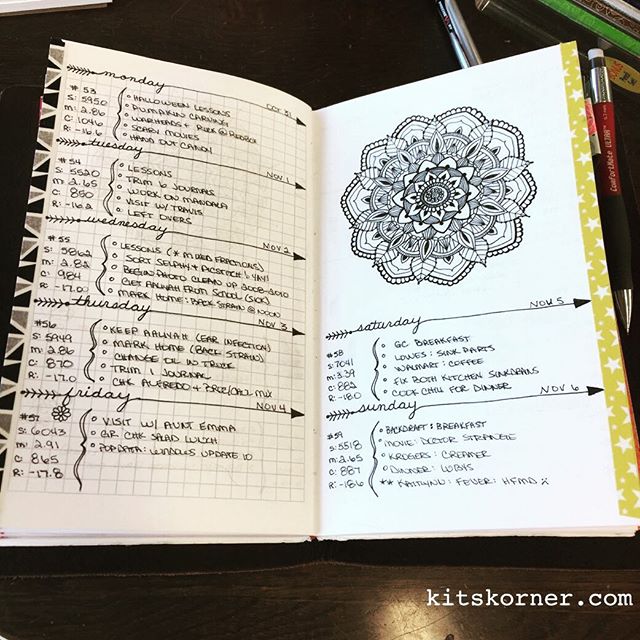 monday
OCT 31
#53
S: 5950
m: 2.86
C: 1046
R: -16.0
HALLOWEEN LESSONS
PUMPKIN CARVING
WARHEADS + RUEK @ REDBOX
SCARY MOVIES
HAND OUT CANDY
tuesday
NOV 1
#54
S: 5520
m: 2.65
C: 850
R: -16.2
LESSONS
TRIM 6 JOURNALS
WORK ON MANDALA
VISIT W/ TRAVIS
LEFT OVERS
wednesday
NOV 2
#55
S: 5862
m: 2.82
C: 984
R: -17.0
LESSONS (* MIXED FRACTIONS)
SORT SELPHY + PICSTITCH! YAY!
BEGIN PHOTO CLEAN UP 2008-2010
GET AALIYAH FROM SCHOOL (SICK)
MARK HOME: BACK STRAIN @ NOON
thursday
NOV 3
#56
S: 5949
m: 2.86
C: 870
R: -17.0
KEEP AALIYAH (EAR INFECTION)
MARK HOME (BACK STRAIN)
CHANGE OIL IN TRUCK
TRIM 1 JOURNAL
CHK ALFREDO + BROC/CAUL MIX
friday
NOV 4
#57
S: 6043
m: 2.91
C: 865
R: -17.8
VISIT W/ AUNT EMMA
GR. CHK SALAD LUNCH
POPDATA: WINDOWS UPDATE 10
NOV 5
saturday
#58
S: 7041
m: 3.39
C: 882
R: -18.0
GC BREAKFAST
LOWES: SINK PARTS
WALMART: COFFEE
FIX BOTH KITCHEN SINKDRAINS
COOK CHILI FOR DINNER
NOV 6
sunday
#59
S: 5518
m: 2.65
C: 887
R: -18.6
BACKDRAFT: BREAKFAST
MOVIE: DOCTOR STRANGE
KROGERS: CREAMER
DINNER: LUBYS
** KAITLYNN: FEVER: HFMD :(
ComfortMate ULTRA
kitskorner.com